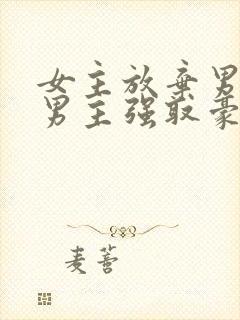 女主放弃男
男主强取豪
麦蔷